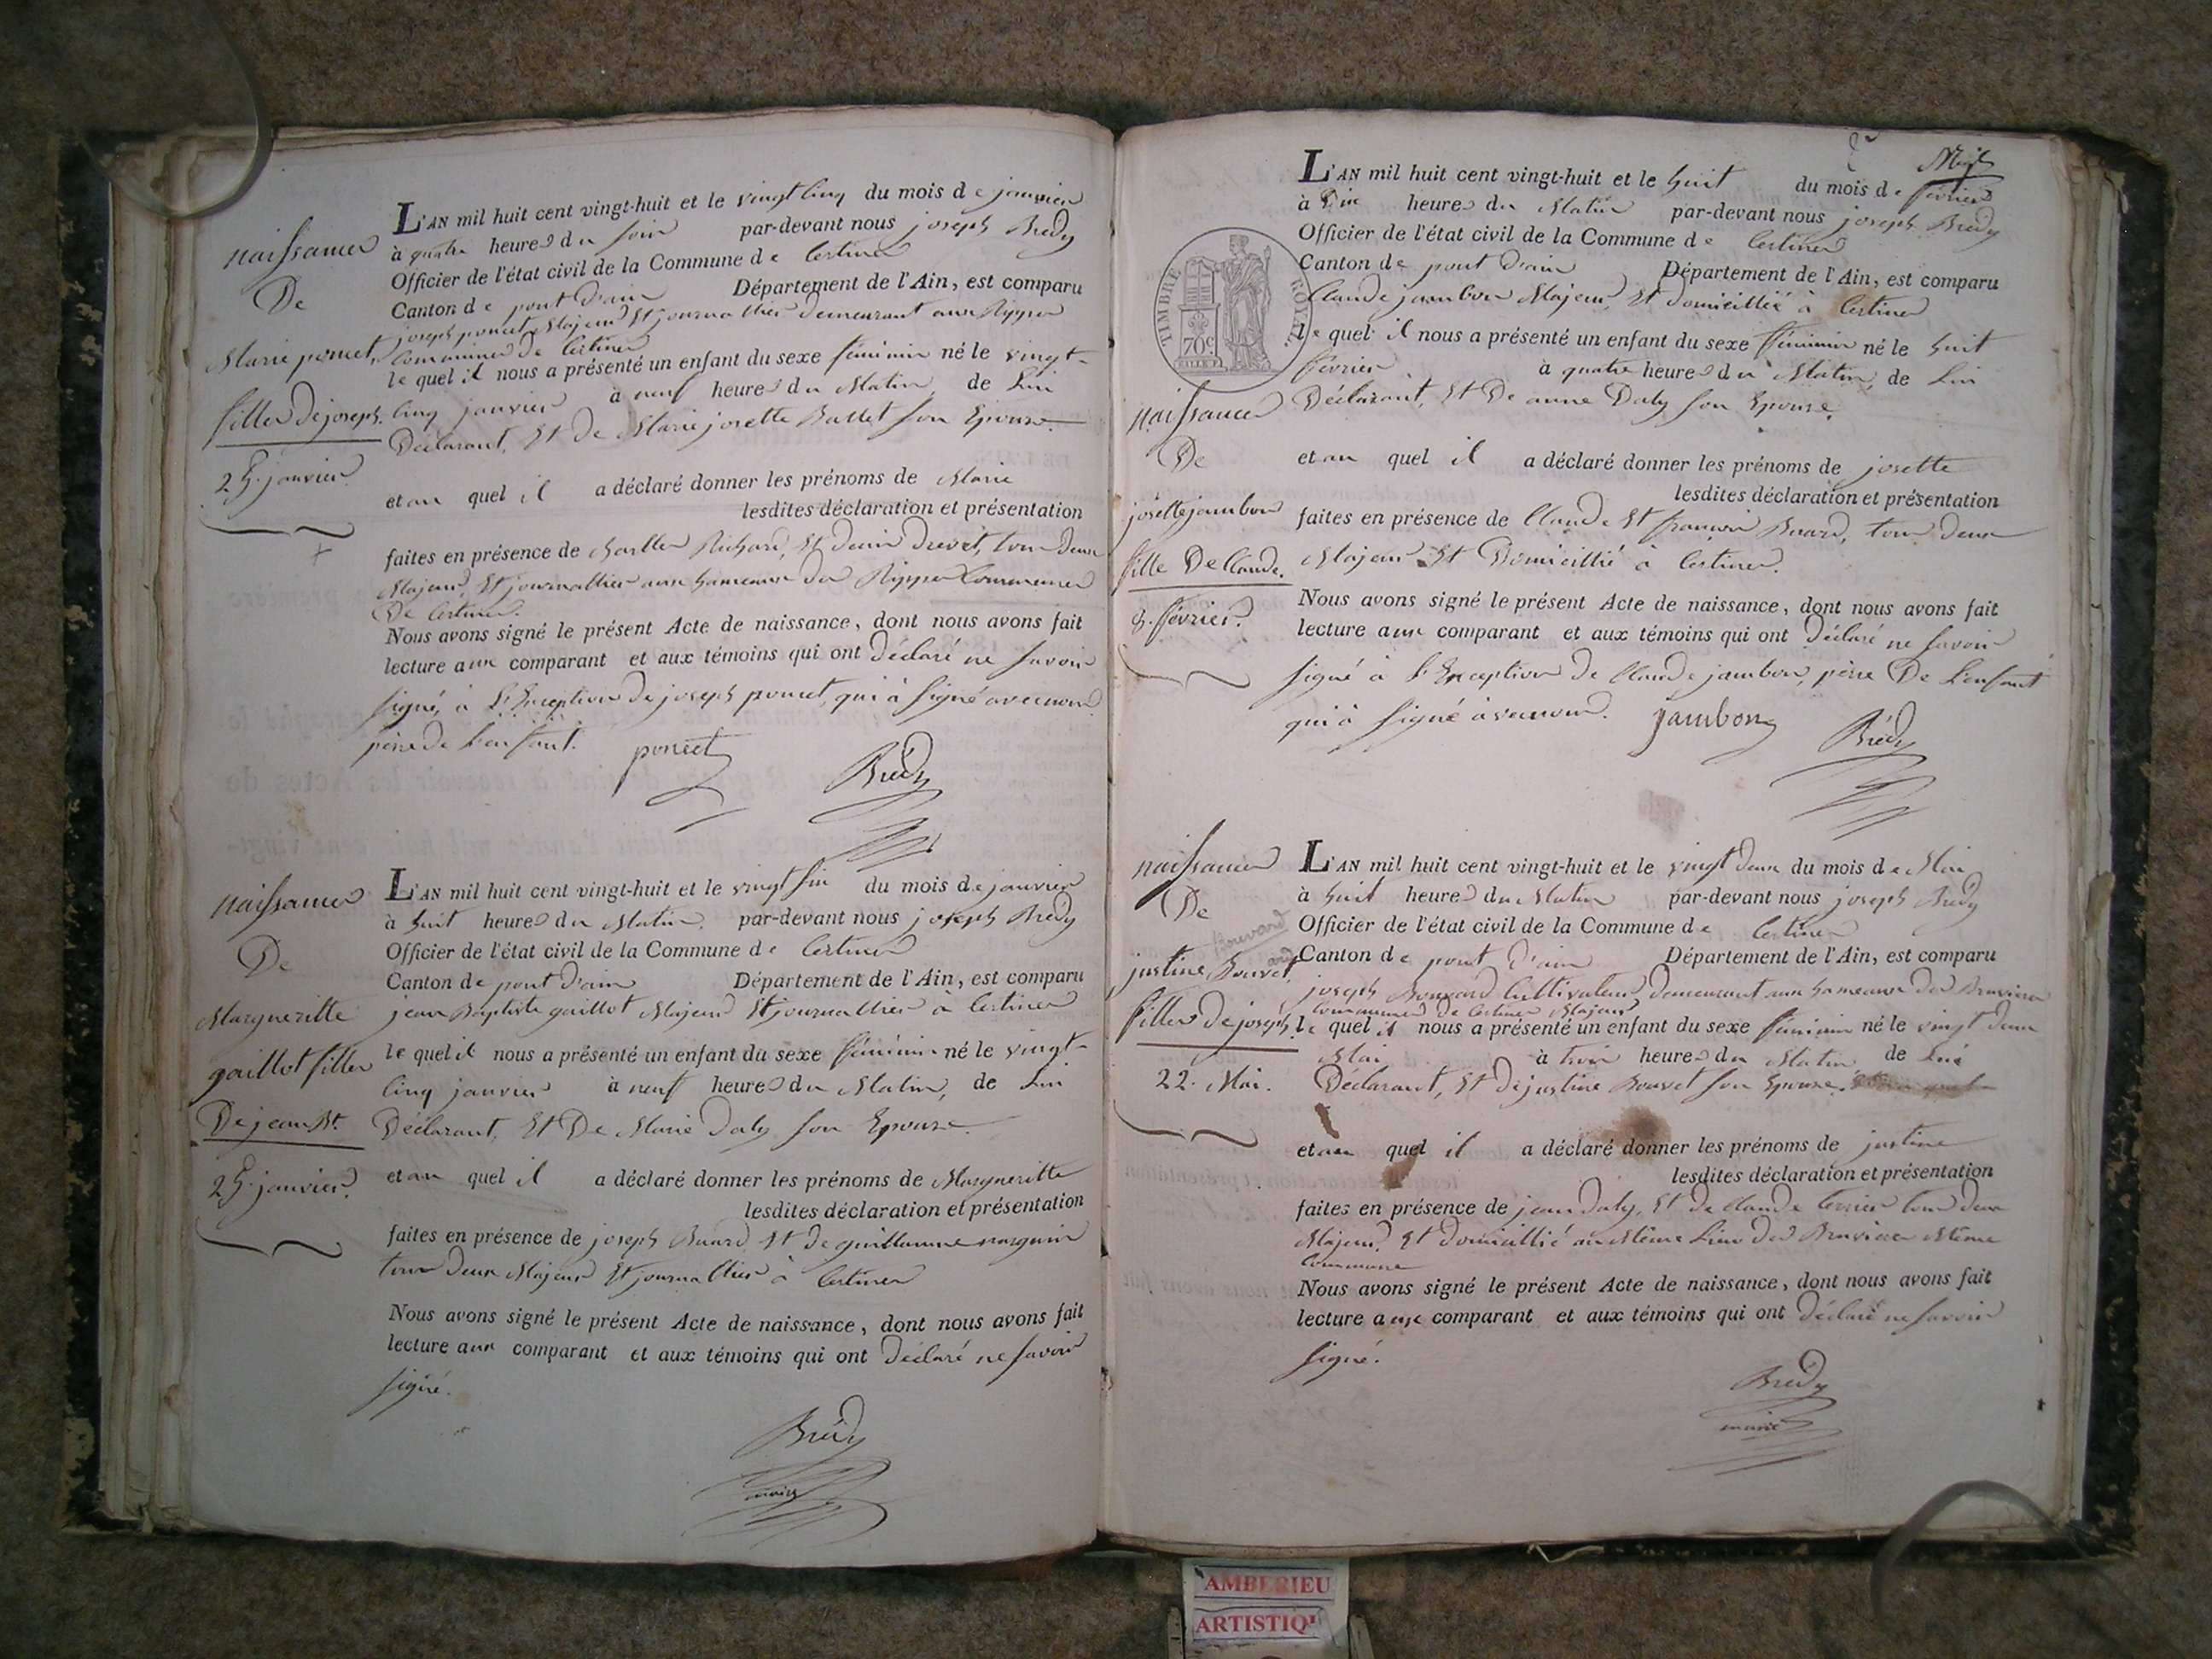 naissance
De
Marie poncet,
fille De joseph.
25. janvier.
L'AN mil huit cent vingt-huit et le vingt cinq du mois de janvier
à quatre heures du soir par-devant nous joseph Brédy
Officier de l'état civil de la Commune de Certines
Canton de pont d'ain Département de l'Ain, est comparu
joseph poncet Majeur Et journallier demeurant aux Rippes
Commune de Certines
le quel il nous a présenté un enfant du sexe féminin né le vingt-
cinq janvier à neuf heures du Matin, de Lui
Déclarant, Et de Marie josette Ballet son Epouse.
et au quel il a déclaré donner les prénoms de Marie
lesdites déclaration et présentation
faites en présence de Charles Richard, Et denis Drevet, tous deux
Majeurs, Et journalliers aux hameaux des Rippes Commune
De Certines.
Nous avons signé le présent Acte de naissance, dont nous avons fait
lecture aux comparant et aux témoins qui ont Déclaré ne savoir
signé, à L'Exception de joseph poncet, qui à signé avec nous.
père de L'enfant. poncet Brédy
naissance
De
Margueritte
gaillot fille
De jean Bt.
25. janvier.
L'AN mil huit cent vingt-huit et le vingt six du mois de janvier
à huit heures du Matin, par-devant nous joseph Brédy
Officier de l'état civil de la Commune de Certines
Canton de pont d'ain Département de l'Ain, est comparu
jean Baptiste gaillot Majeur Et journallier à Certines
le quel il nous a présenté un enfant du sexe féminin né le vingt-
cinq janvier à neuf heures du Matin, de Lui
Déclarant, Et De Marie Daly son Epouse.
et au quel il a déclaré donner les prénoms de Margueritte
lesdites déclaration et présentation
faites en présence de joseph Buard Et de guillaume
tous deux Majeurs Et journalliers à Certines
Nous avons signé le présent Acte de naissance, dont nous avons fait
lecture aux comparant et aux témoins qui ont Déclaré ne savoir
signé.
Brédy
maire
TIMBRE ROYAL
70c
naissance
De
josette jambon
fille De Claude.
8. février.
L'AN mil huit cent vingt-huit et le huit du mois de février
à Dix heures du Matin par-devant nous joseph Brédy
Officier de l'état civil de la Commune de Certines
Canton de pont d'ain Département de l'Ain, est comparu
Claude jambon Majeur, Et domicillié à Certines
le quel il nous a présenté un enfant du sexe féminin né le huit
février à quatre heures du Matin, de Lui
Déclarant, Et De anne Daly son Epouse.
et au quel il a déclaré donner les prénoms de josette
lesdites déclaration et présentation
faites en présence de Claude Et françois Buard, tous deux
Majeurs Et Domicillié à Certines.
Nous avons signé le présent Acte de naissance, dont nous avons fait
lecture aux comparant et aux témoins qui ont Déclaré ne savoir
signé à L'Exception de Claude jambon, père De L'enfant
qui à signé avec nous. jambon Brédy
naissance
De
Bouvard
justine Bouvet
fille De joseph.
22. Mai.
L'AN mil huit cent vingt-huit et le vingt deux du mois de Mai
à huit heures du Matin par-devant nous joseph Brédy
Officier de l'état civil de la Commune de Certines
Canton de pont d'ain Département de l'Ain, est comparu
joseph Bouvard Cultivateur, demeurant aux hameaux des Bruvieres
Commune de Certines Majeur
le quel il nous a présenté un enfant du sexe féminin né le vingt deux
Mai à trois heures du Matin de Lui
Déclarant, Et de justine Bouvet son Epouse.
et au quel il a déclaré donner les prénoms de justine
lesdites déclaration et présentation
faites en présence de jean Daly, Et de Claude Terrier tous deux
Majeurs, Et domicillié au Même Lieu des Bruvieres Même
Commune
Nous avons signé le présent Acte de naissance, dont nous avons fait
lecture aux comparant et aux témoins qui ont déclaré ne savoir
signé.
Brédy
maire
AMBERIEU
ARTISTIQU